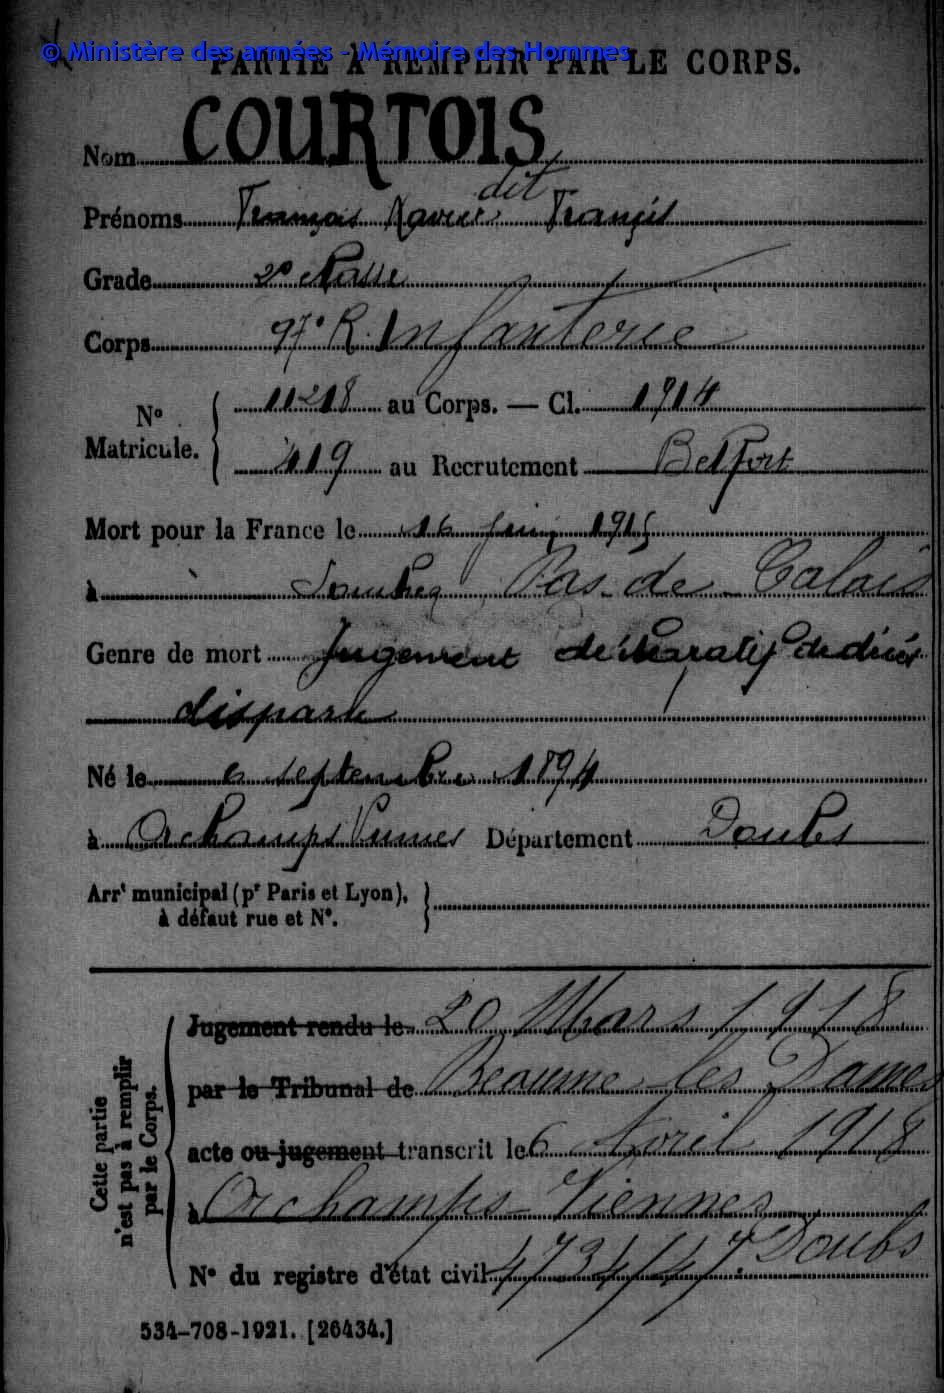 © Ministère des armées - Mémoire des Hommes
PARTIE À REMPLIR PAR LE CORPS.
Nom COURTOIS
dit
Prénoms François Xavier François
Grade 2e Classe
Corps 97e R. Infanterie
No Matricule. { 11218 au Corps. — Cl. 1914
419 au Recrutement Belfort
Mort pour la France le 16 juin 1915
à Souchez Pas-de-Calais
Genre de mort Jugement déclaratif de décès
disparu
Né le 6 septembre 1894
à Orchamps Vennes Département Doubs
Arrt municipal (pr Paris et Lyon),
à défaut rue et No.
Cette partie
n'est pas à remplir
par le Corps.
Jugement rendu le 20 Mars 1918
par le Tribunal de Beaume-les Dames
acte ou jugement transcrit le 6 Avril 1918
à Orchamps-Viennes
Doubs
No du registre d'état civil 4734/47.
534-708-1921. [26434.]